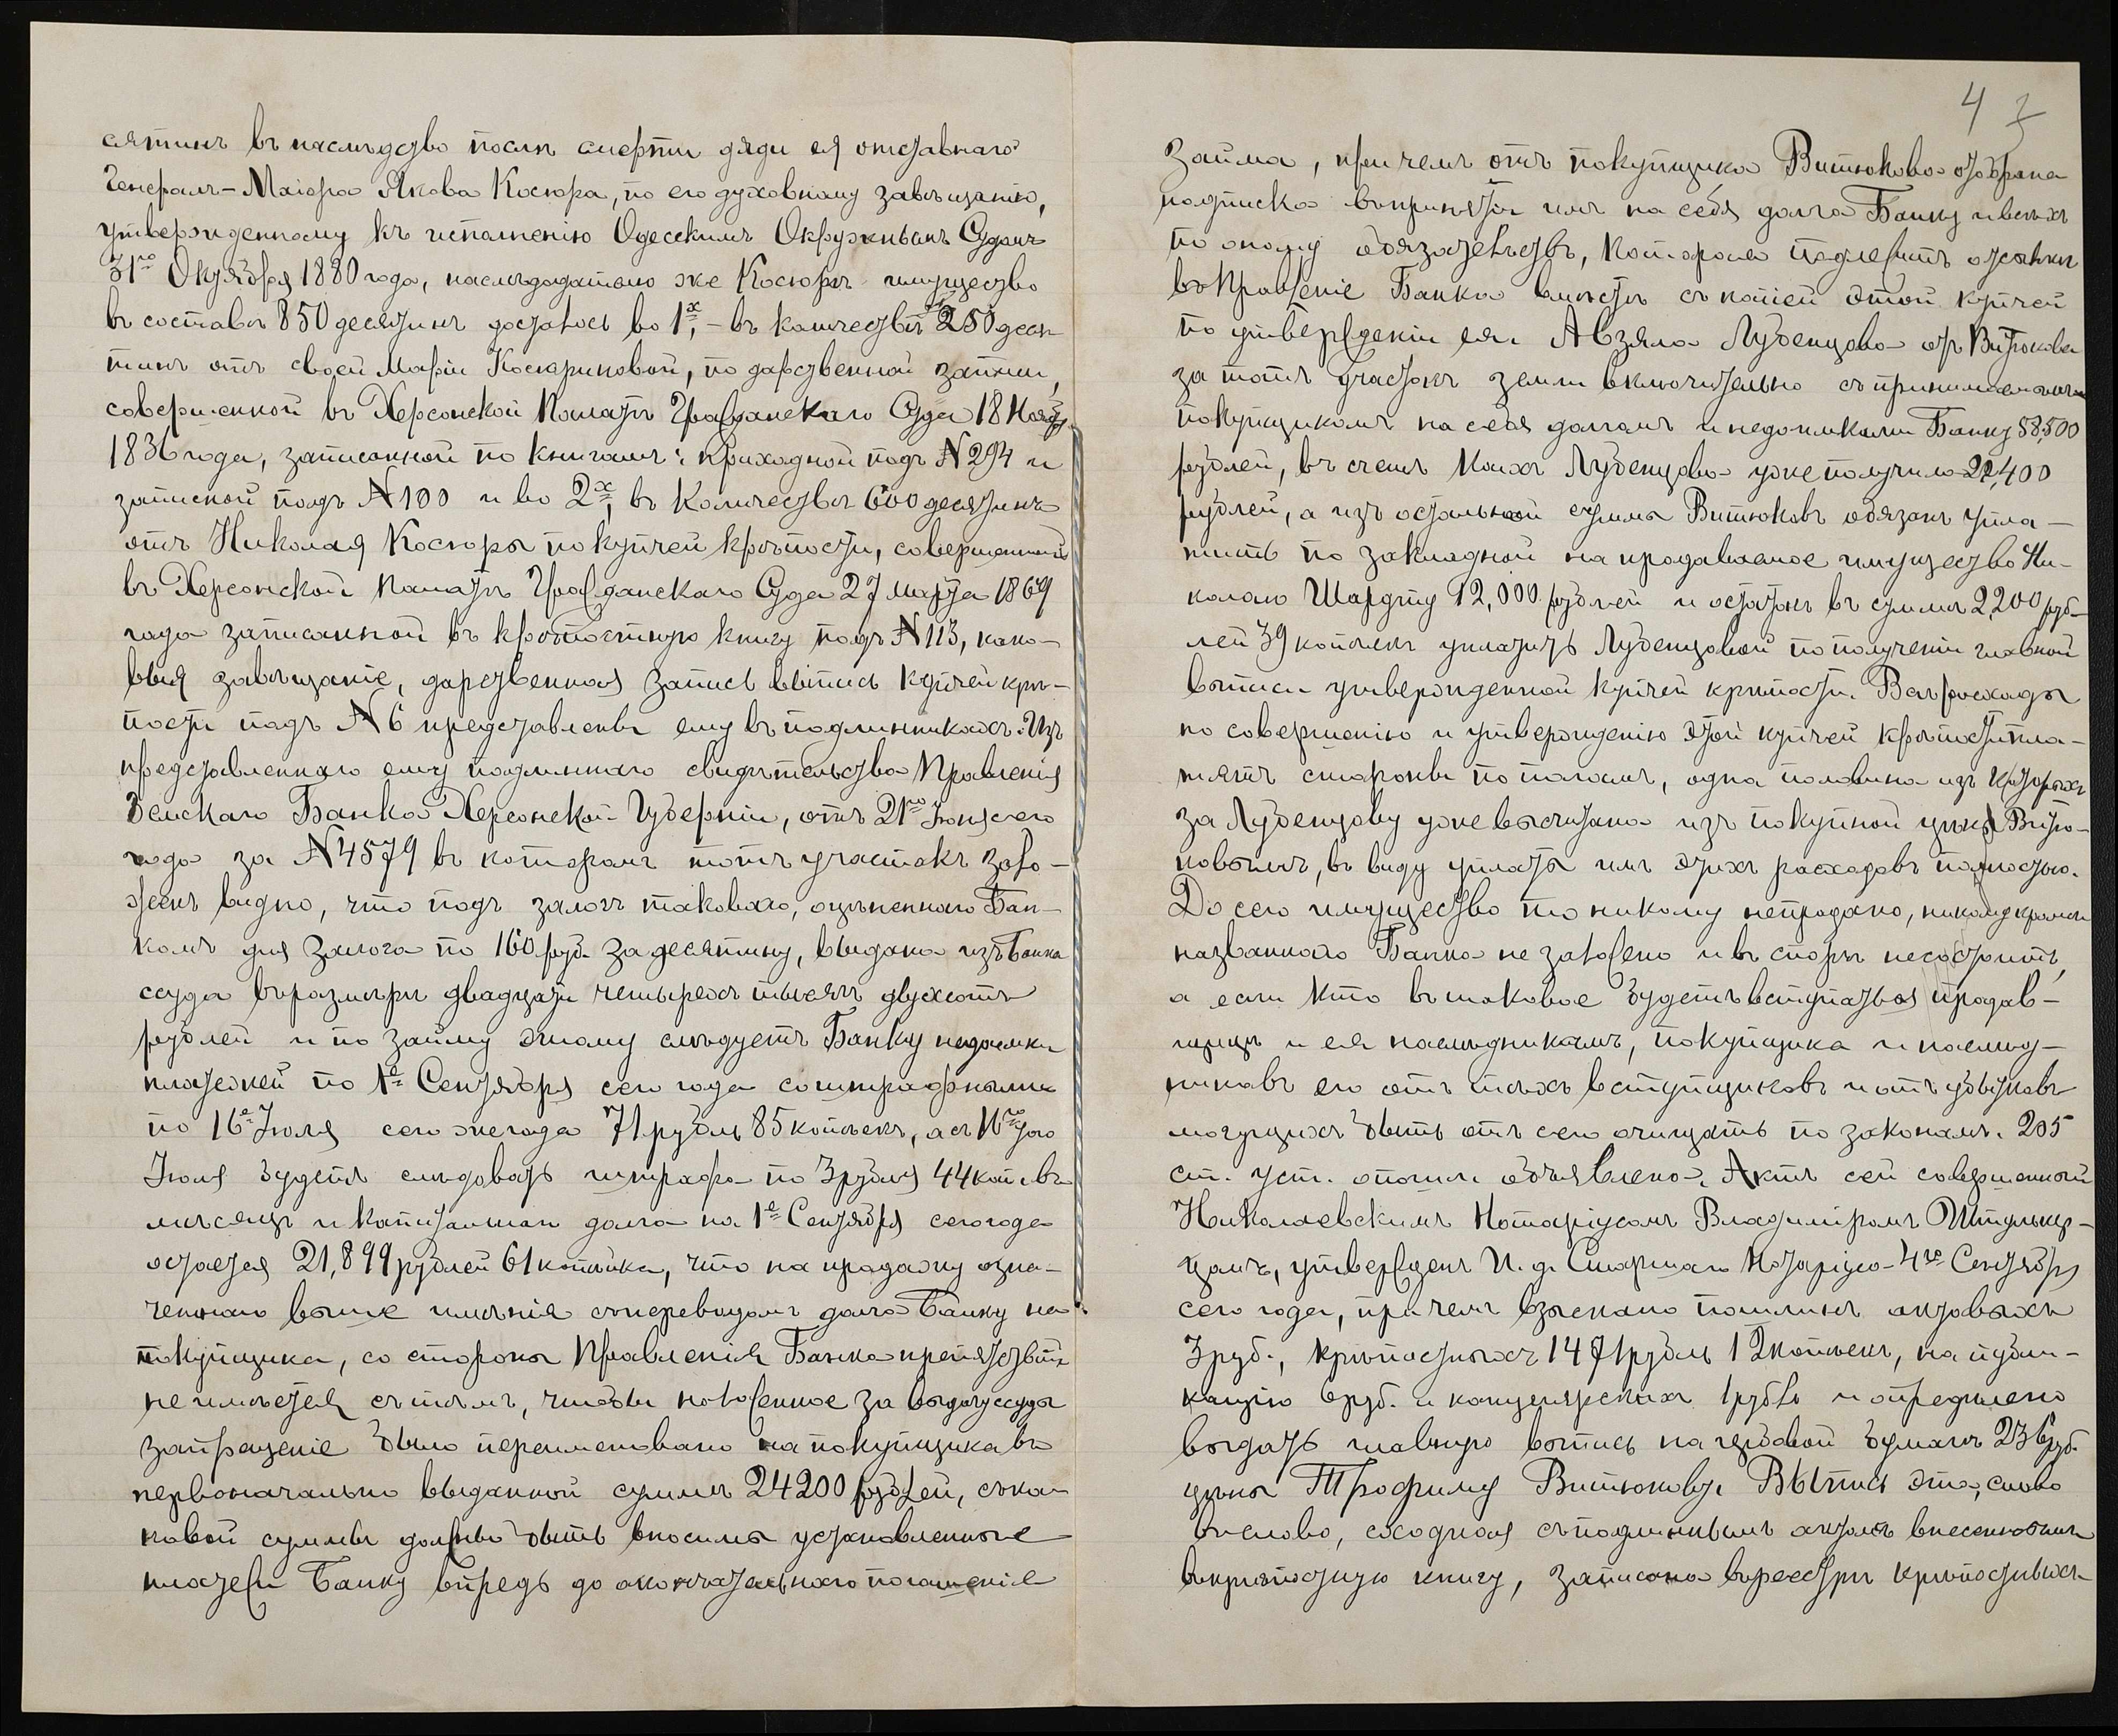 сятинъ въ наслѣдство послѣ смерти дяди ея отставнаго
Генералъ-Маіора Якова Косюра, по его духовному завѣщанію,
утвержденному къ исполненію Одесскимъ Окружнымъ Судомъ
31го Октября 1880 года, наслѣдодателю же Косюрѣ имущество
въ составѣ 850 десятинъ досталось во 1х, – въ количествѣ 250 деся
тинъ отъ своей Маріи Косюриновой, по дарственной записи,
совершенной въ Херсонской Палатѣ Гражданскаго Суда 18 Ноября
1836 года, записанной по книгамъ: приходной подъ №294 и
записной подъ №100 и во 2х, въ количествѣ 600 десятинъ
отъ Николая Косюры по купчей крѣпости, совершенной
въ Херсонской Палатѣ Гражданскаго Суда 27 Марта 1869
года записанной въ крѣпостную книгу подъ №113, како-
выя завѣщаніе, дарственная запись выпись купчей крѣ-
пости подъ №6 представлены ему въ подлинникахъ. Изъ
представленнаго ему подлиннаго свидѣтельства Правленія
Земскаго Банка Херсонской Губерніи, отъ 21го Іюня сего
года за №4579 въ которомъ тотъ участокъ зало-
женъ видно, что подъ залогъ таковаго, оцѣненнаго Бан-
комъ для залога по 160 руб. за десятину, выдана изъ Банка
ссуда въ размѣрѣ двадцати четырехъ тысячъ двухсотъ
рублей и по займу этому слѣдуетъ Банку недоимки
платежей по 1е Сентября сего года со штрафными
по 16е Іюля сего же года 71 рубль 85 копѣекъ, а съ 16го того
Іюля будетъ слѣдовать штрафа по 3 рубля 44 коп. въ
мѣсяцъ и капитальнаго долга на 1е Сентября сего года
остается 21,899 рублей 61 копѣйка, что на продажу озна-
ченнаго выше имѣнія съ переводомъ долга Банку на
покупщика, со стороны Правленія Банка препятствій
не имѣется съ тѣмъ, чтобы наложенное за выдачу ссуды
запрещеніе было переименовано на покупщика въ
первоначально выданной суммѣ 24200 рублей, съ ка-
ковой суммы должны быть вносимы установленные
платежи Банку впредь до окончательнаго погашенія
4 3
займа, при чемъ отъ покупщика Витюкова отобрана
подписка въ принятіи имъ на себя долга Банку и всѣхъ
по оному обязательствъ, которая подлежитъ отсылкѣ
въ Правленіе Банка вмѣстѣ съ копіей этой купчей
по утвержденіи ея. А взяла Лубенцова отъ Витюкова
за тотъ участокъ земли включительно съ принимаемымъ
покупщикомъ на себя долгомъ и недоимками Банку 58,500
рублей, въ счетъ коихъ Лубенцова уже получила 22,400
рублей, а изъ остальной суммы Витюковъ обязанъ упла-
тить по закладной на продаваемое имущество Ни-
колаю Шардту 12,000 рублей и остатокъ въ суммѣ 2,200 руб-
лей 39 копѣекъ уплатить Лубенцовой по полученіи главной
выписи утвержденной купчей крѣпости. Всѣ расходы
по совершенію и утвержденію этой купчей крѣпости пла-
тятъ стороны по поламъ, одна половина изъ которыхъ
за Лубенцову уже высчитана изъ покупной цѣны Витю-
ковымъ, въ виду уплаты имъ этихъ расходовъ полностью.
До сего имущество то никому не продано, никому кромѣ
названнаго Банка не заложено и въ спорѣ не состоитъ,
а если кто въ таковое будетъ вступаться продав-
щицѣ и ея наслѣдникамъ, покупщика и наслѣд-
никовъ его отъ тѣхъ вступщиковъ и отъ убытковъ
могущихъ быть отъ сего очищать по законамъ. 205
ст. уст. о пошл. объявлено. Актъ сей совершенный
Николаевскимъ Нотаріусомъ Владиміромъ Штульцер-
помъ, утвержденъ И. д. Старшаго Нотаріуса 4го Сентября
сего года, при чемъ взыскано пошлинъ актовыхъ
3 руб., крѣпостныхъ 1471 рубль 12 копѣекъ, на публи-
кацію 6 руб. и канцелярскихъ 1 рубль и опредѣлено
выдать главную выпись на гербовой бумагѣ 236 руб.
цѣны Трофиму Витюкову. Выпись эта, слово
въ слово, сходная съ подлиннымъ актомъ внесеннымъ
въ крѣпостную книгу, записана въ реестрѣ крѣпостныхъ